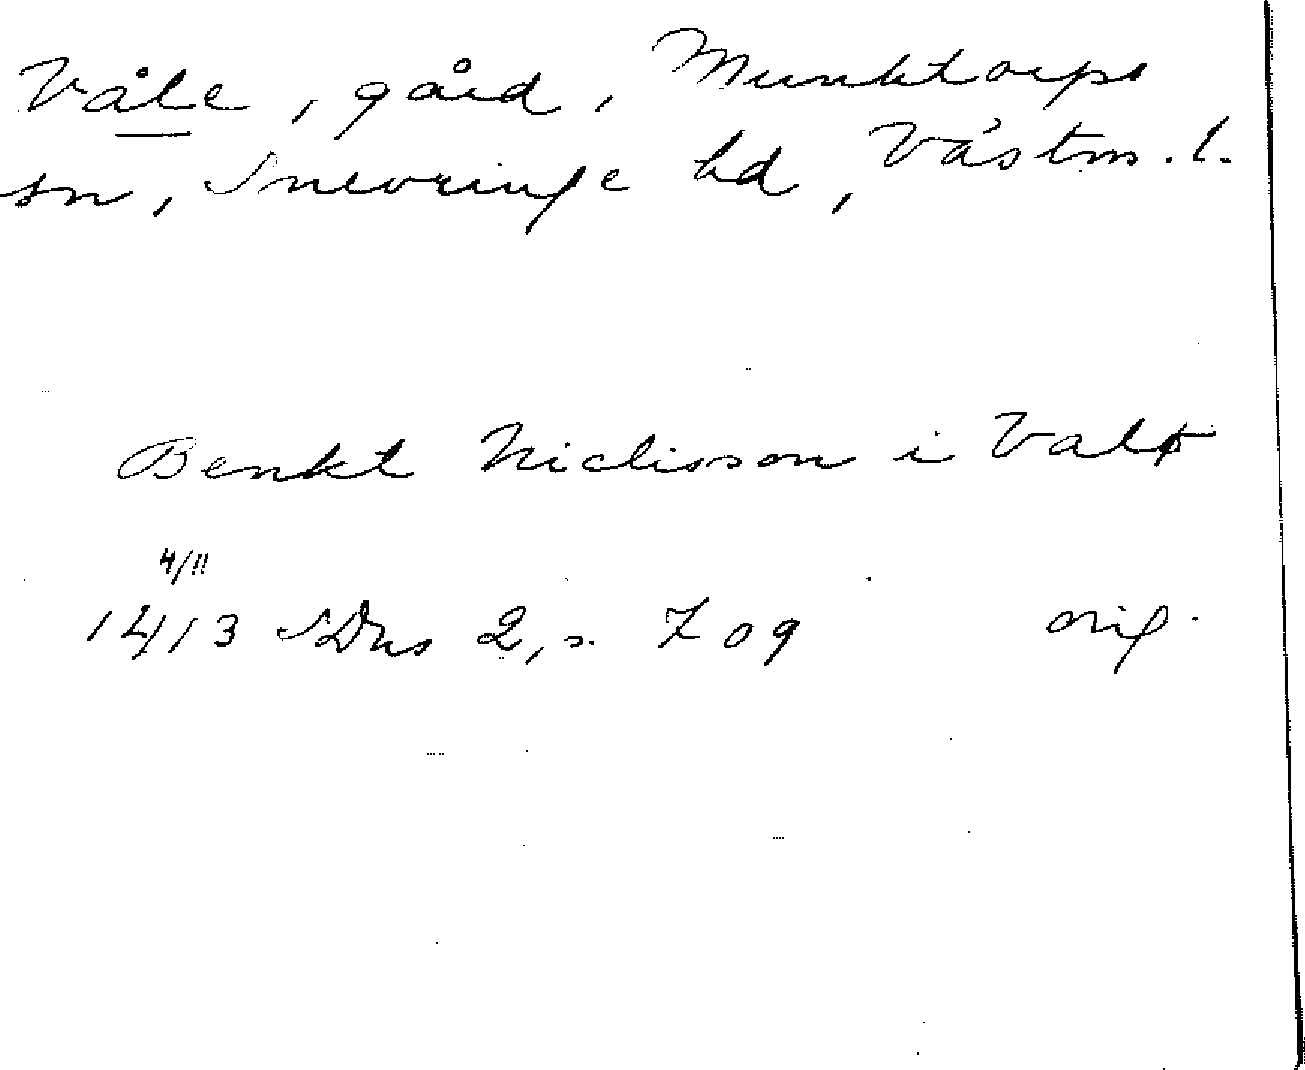 Våle, gård, Munktorps
sn, Snevringe hd, Västm. l.
Benkt Niclisson i Valø
4/11
1413 SDns 2, s. 709 orig.